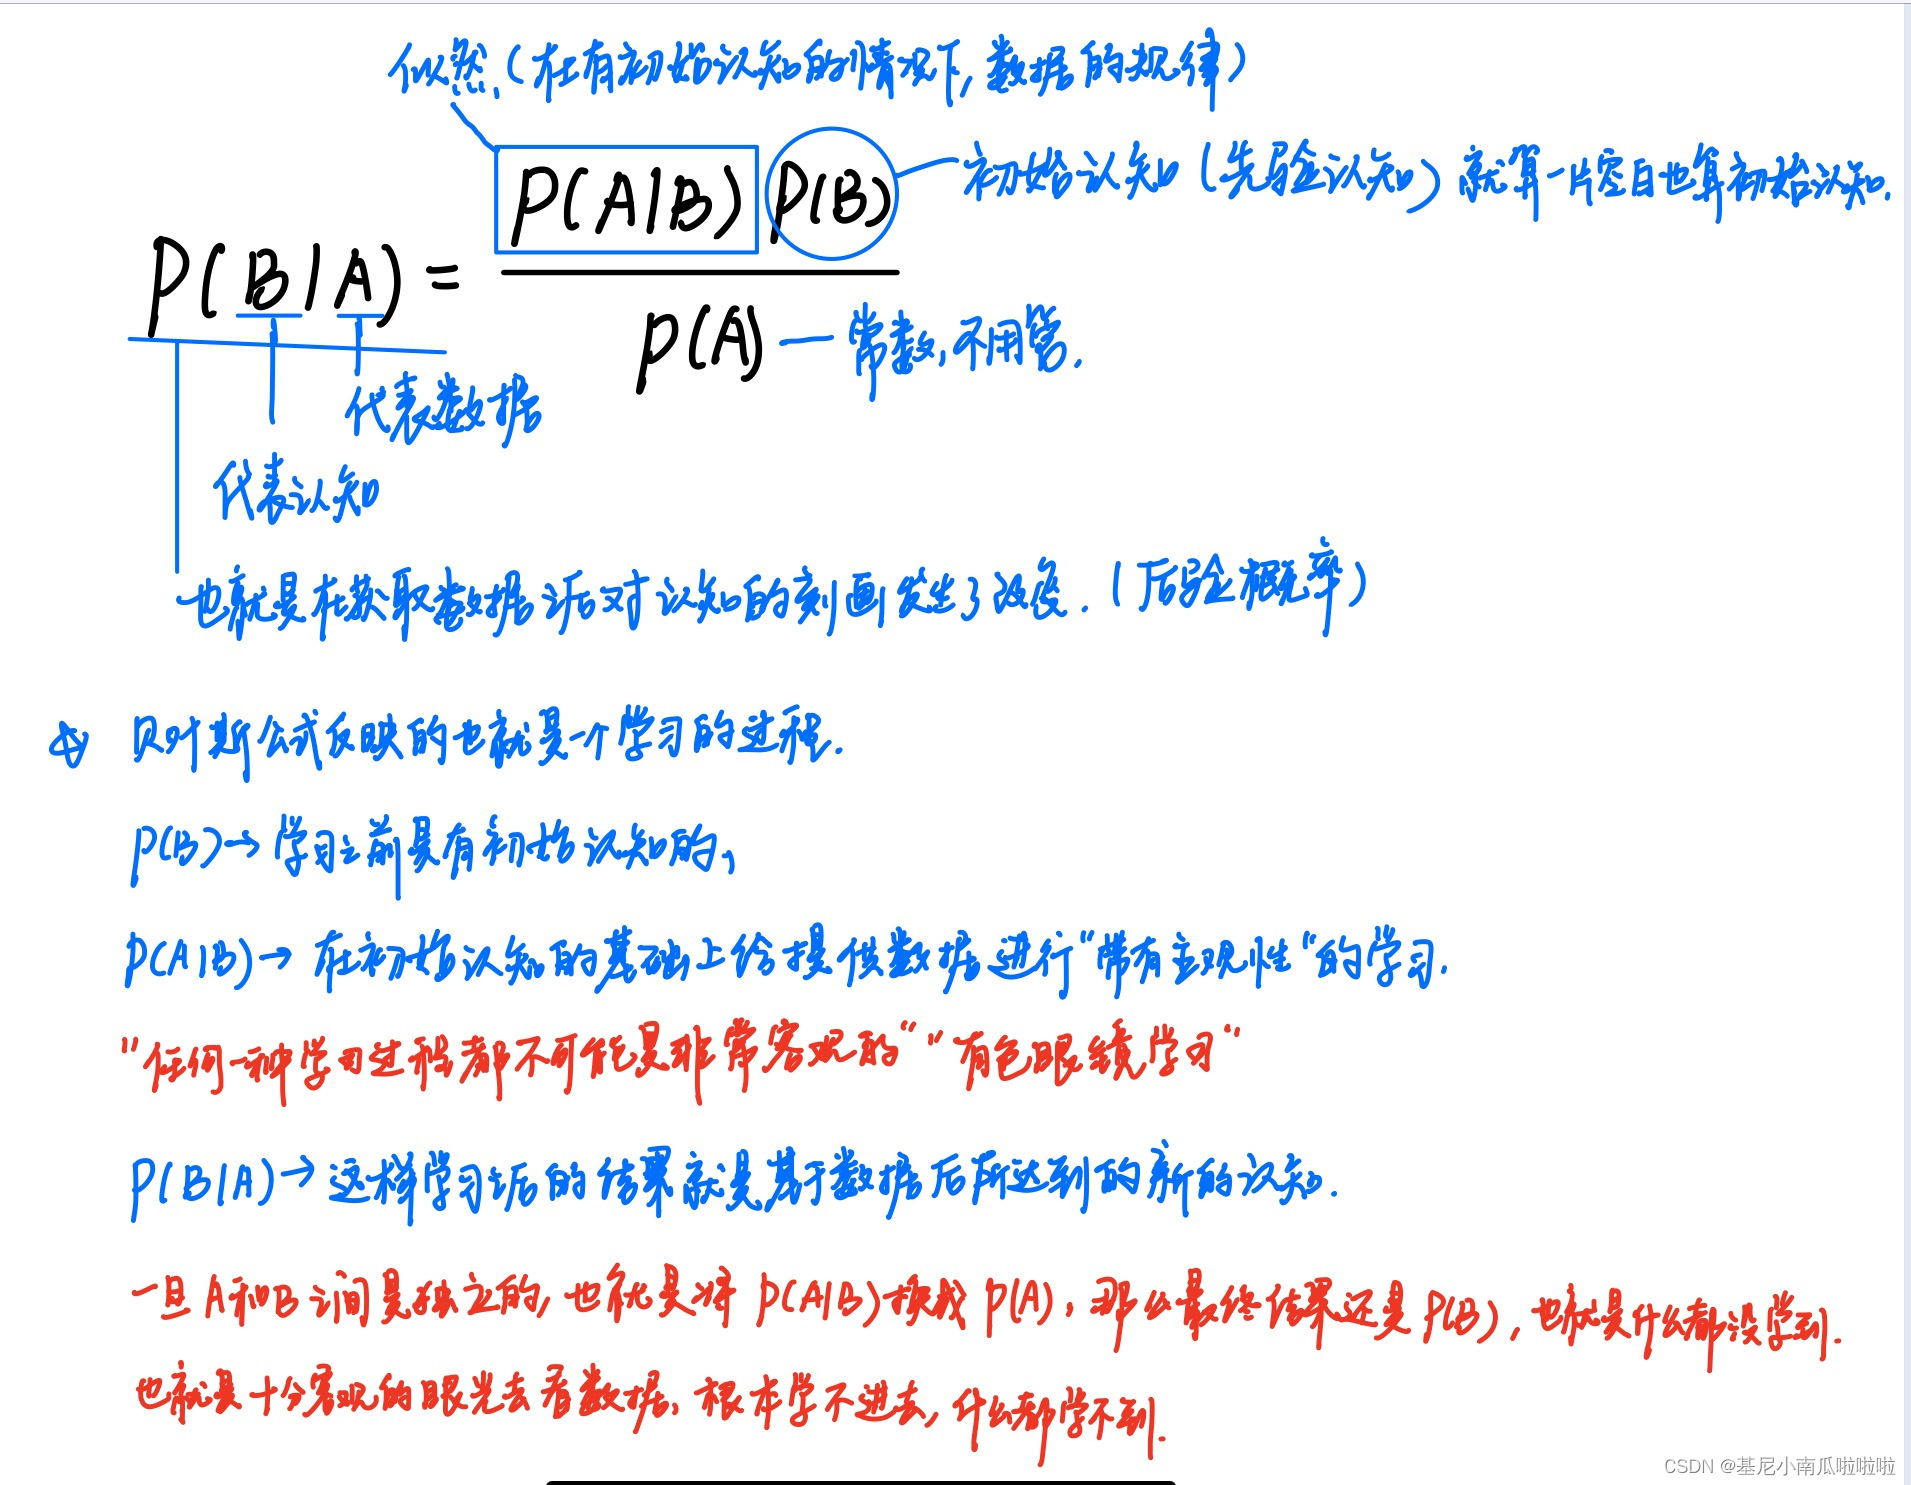 似然（在有初始认知的情况下,数据的规律）
P(A|B) P(B)
初始认知（先验认知）就算一片空白也算初始认知.
P(B|A) =
P(A)
常数,不用管.
代表数据
代表认知
也就是在获取数据后对认知的刻画发生了改变.（后验概率）
贝叶斯公式反映的也就是一个学习的过程.
P(B)→学习之前是有初始认知的,
P(A|B)→在初始认知的基础上给提供数据进行“带有主观性“的学习.
"任何一种学习过程都不可能是非常客观的“ "有色眼镜学习“
P(B|A)→这样学习后的结果就是基于数据后所达到的新的认知.
一旦A和B之间是独立的,也就是将P(A|B)换成P(A),那么最终结果还是P(B),也就是什么都没学到.
也就是十分客观的眼光去看数据,根本学不进去,什么都学不到.
CSDN @基尼小南瓜啦啦啦